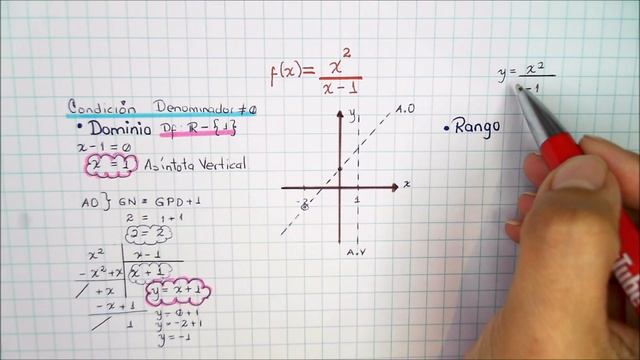 f(x) = x² / x - 1
y = x² / - 1
Condición Denominador ≠ 0
• Dominio Df: R - {1}
x - 1 = 0
x = 1 Asíntota Vertical
AO } GN = GPD + 1
2 = 1 + 1
2 = 2
x² | x - 1
- x² + x | x + 1
/ + x
- x + 1
/ 1
y = x + 1
y = 0 + 1
y = -2 + 1
y = -1
y
A.O
x
-2
1
A.V
• Rango
Tub